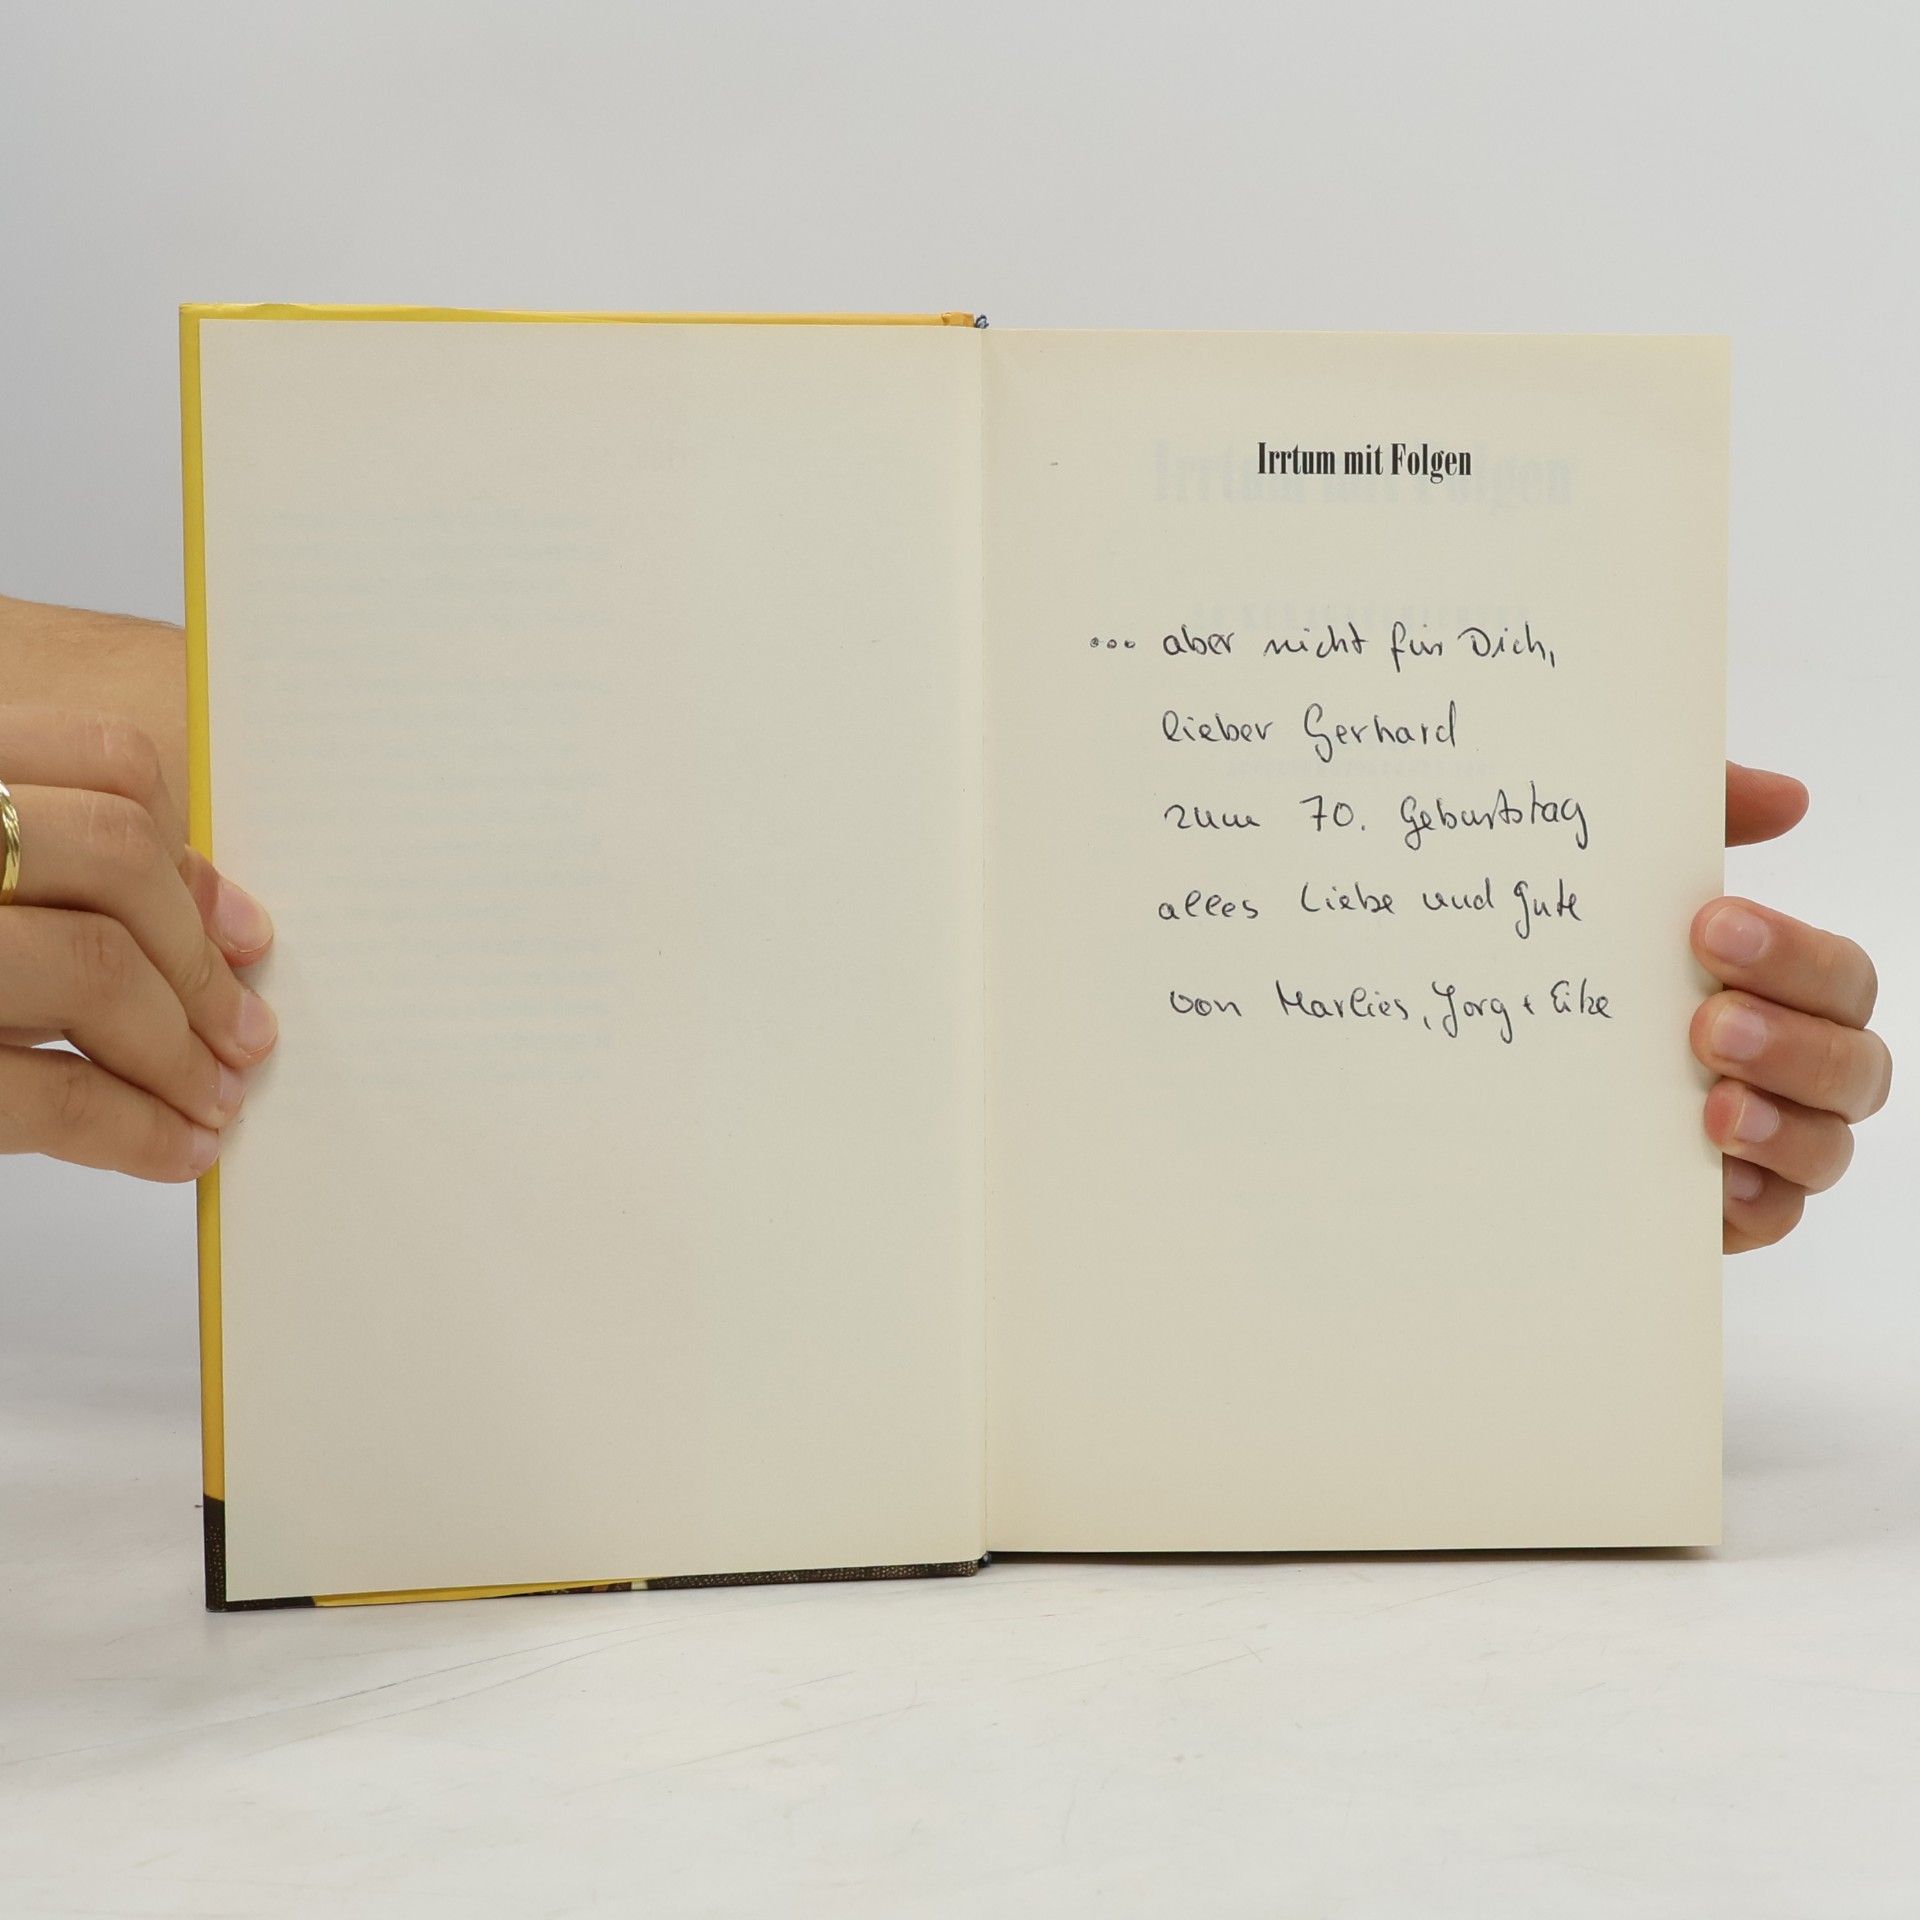 Irrtum mit Folgen
... aber nicht für Dich,
lieber Gerhard
zum 70. Geburtstag
alles Liebe und Gute
von Marlies, Jörg + Eike